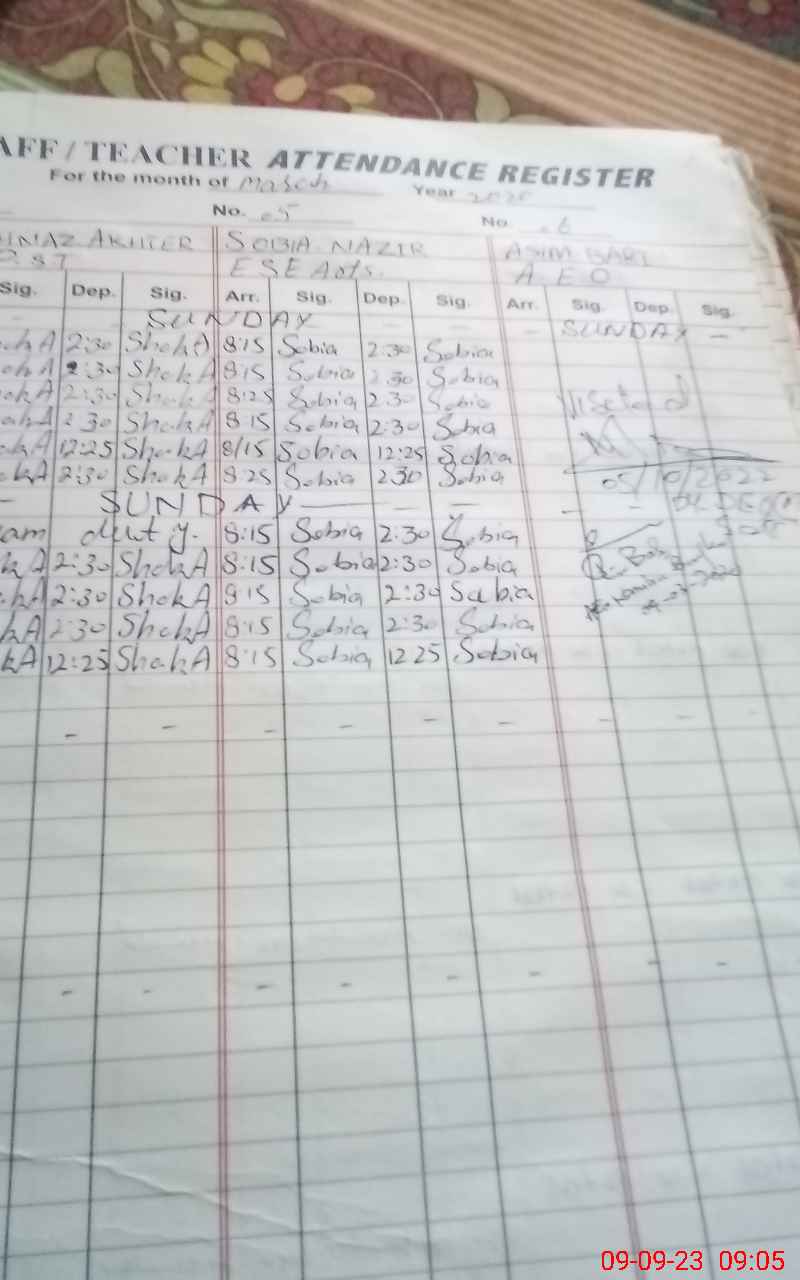 AFF / TEACHER ATTENDANCE REGISTER
For the month of March Year 2020
No. 05 No. 06
INAZ AKHTER SOBIA NAZIR ASIM BARI
PST ESE Arts. A.E.O
Sig. Dep. Sig. Arr. Sig. Dep. Sig. Arr. Sig. Dep. Sig.
- SUNDAY - - - - SUNDAY -
ohA 2:30 ShohA 8:15 Sobia 2:30 Sobia
ohA 2:30 ShohA 8:15 Sobia 2:30 Sobia
ohA 2:30 ShohA 8:25 Sobia 2:30 Sobia
ohA 2:30 ShohA 8:15 Sobia 2:30 Sobia
ohA 12:25 ShohA 8:15 Sobia 12:25 Sobia
ohA 2:30 ShohA 8:25 Sobia 2:30 Sobia 05/10/2022
- SUNDAY - - - -
am duty. 8:15 Sobia 2:30 Sobia
hA 2:30 ShohA 8:15 Sobia 2:30 Sobia
hA 2:30 ShohA 8:15 Sobia 2:30 Sobia
hA 2:30 ShohA 8:15 Sobia 2:30 Sobia
hA 12:25 ShohA 8:15 Sobia 12:25 Sobia
- - - - - - - - -
- - - - - - - -
09-09-23 09:05